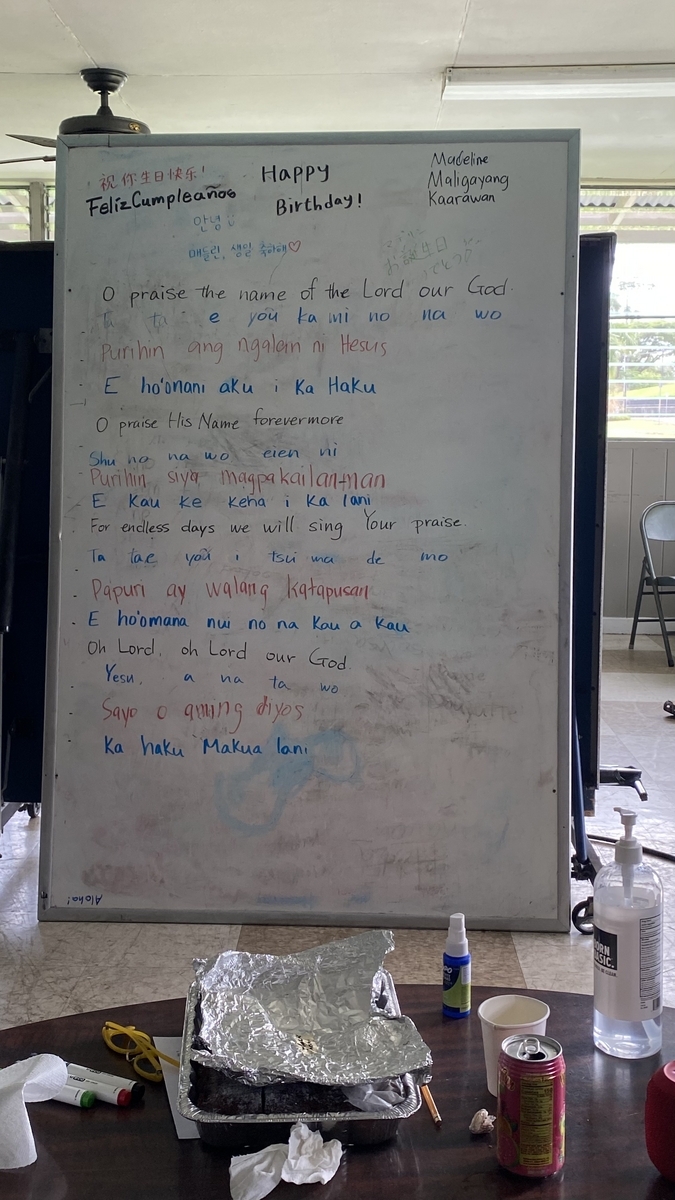 祝你生日快乐!
Feliz Cumpleaños
Happy
Birthday!
Madeline
Maligayang
Kaarawan
안녕
매들린, 생일 축하해♡
お誕生日
O praise the name of the Lord our God.
Ta ta e you ka mi no na wo
Purihin ang ngalan ni Hesus
E ho'onani aku i Ka Haku
O praise His Name forevermore
Shu no na wo eien ni
Purihin siya magpakailanman
E Kau Ke Keha i Ka lani
For endless days we will sing Your praise.
Ta tae you i tsu ma de mo
Papuri ay walang katapusan
E ho'omana nui no na Kau a Kau
Oh Lord, oh Lord our God.
Yesu, a na ta wo
Sayo o aming diyos
Ka haku Makua lani
Aloha!